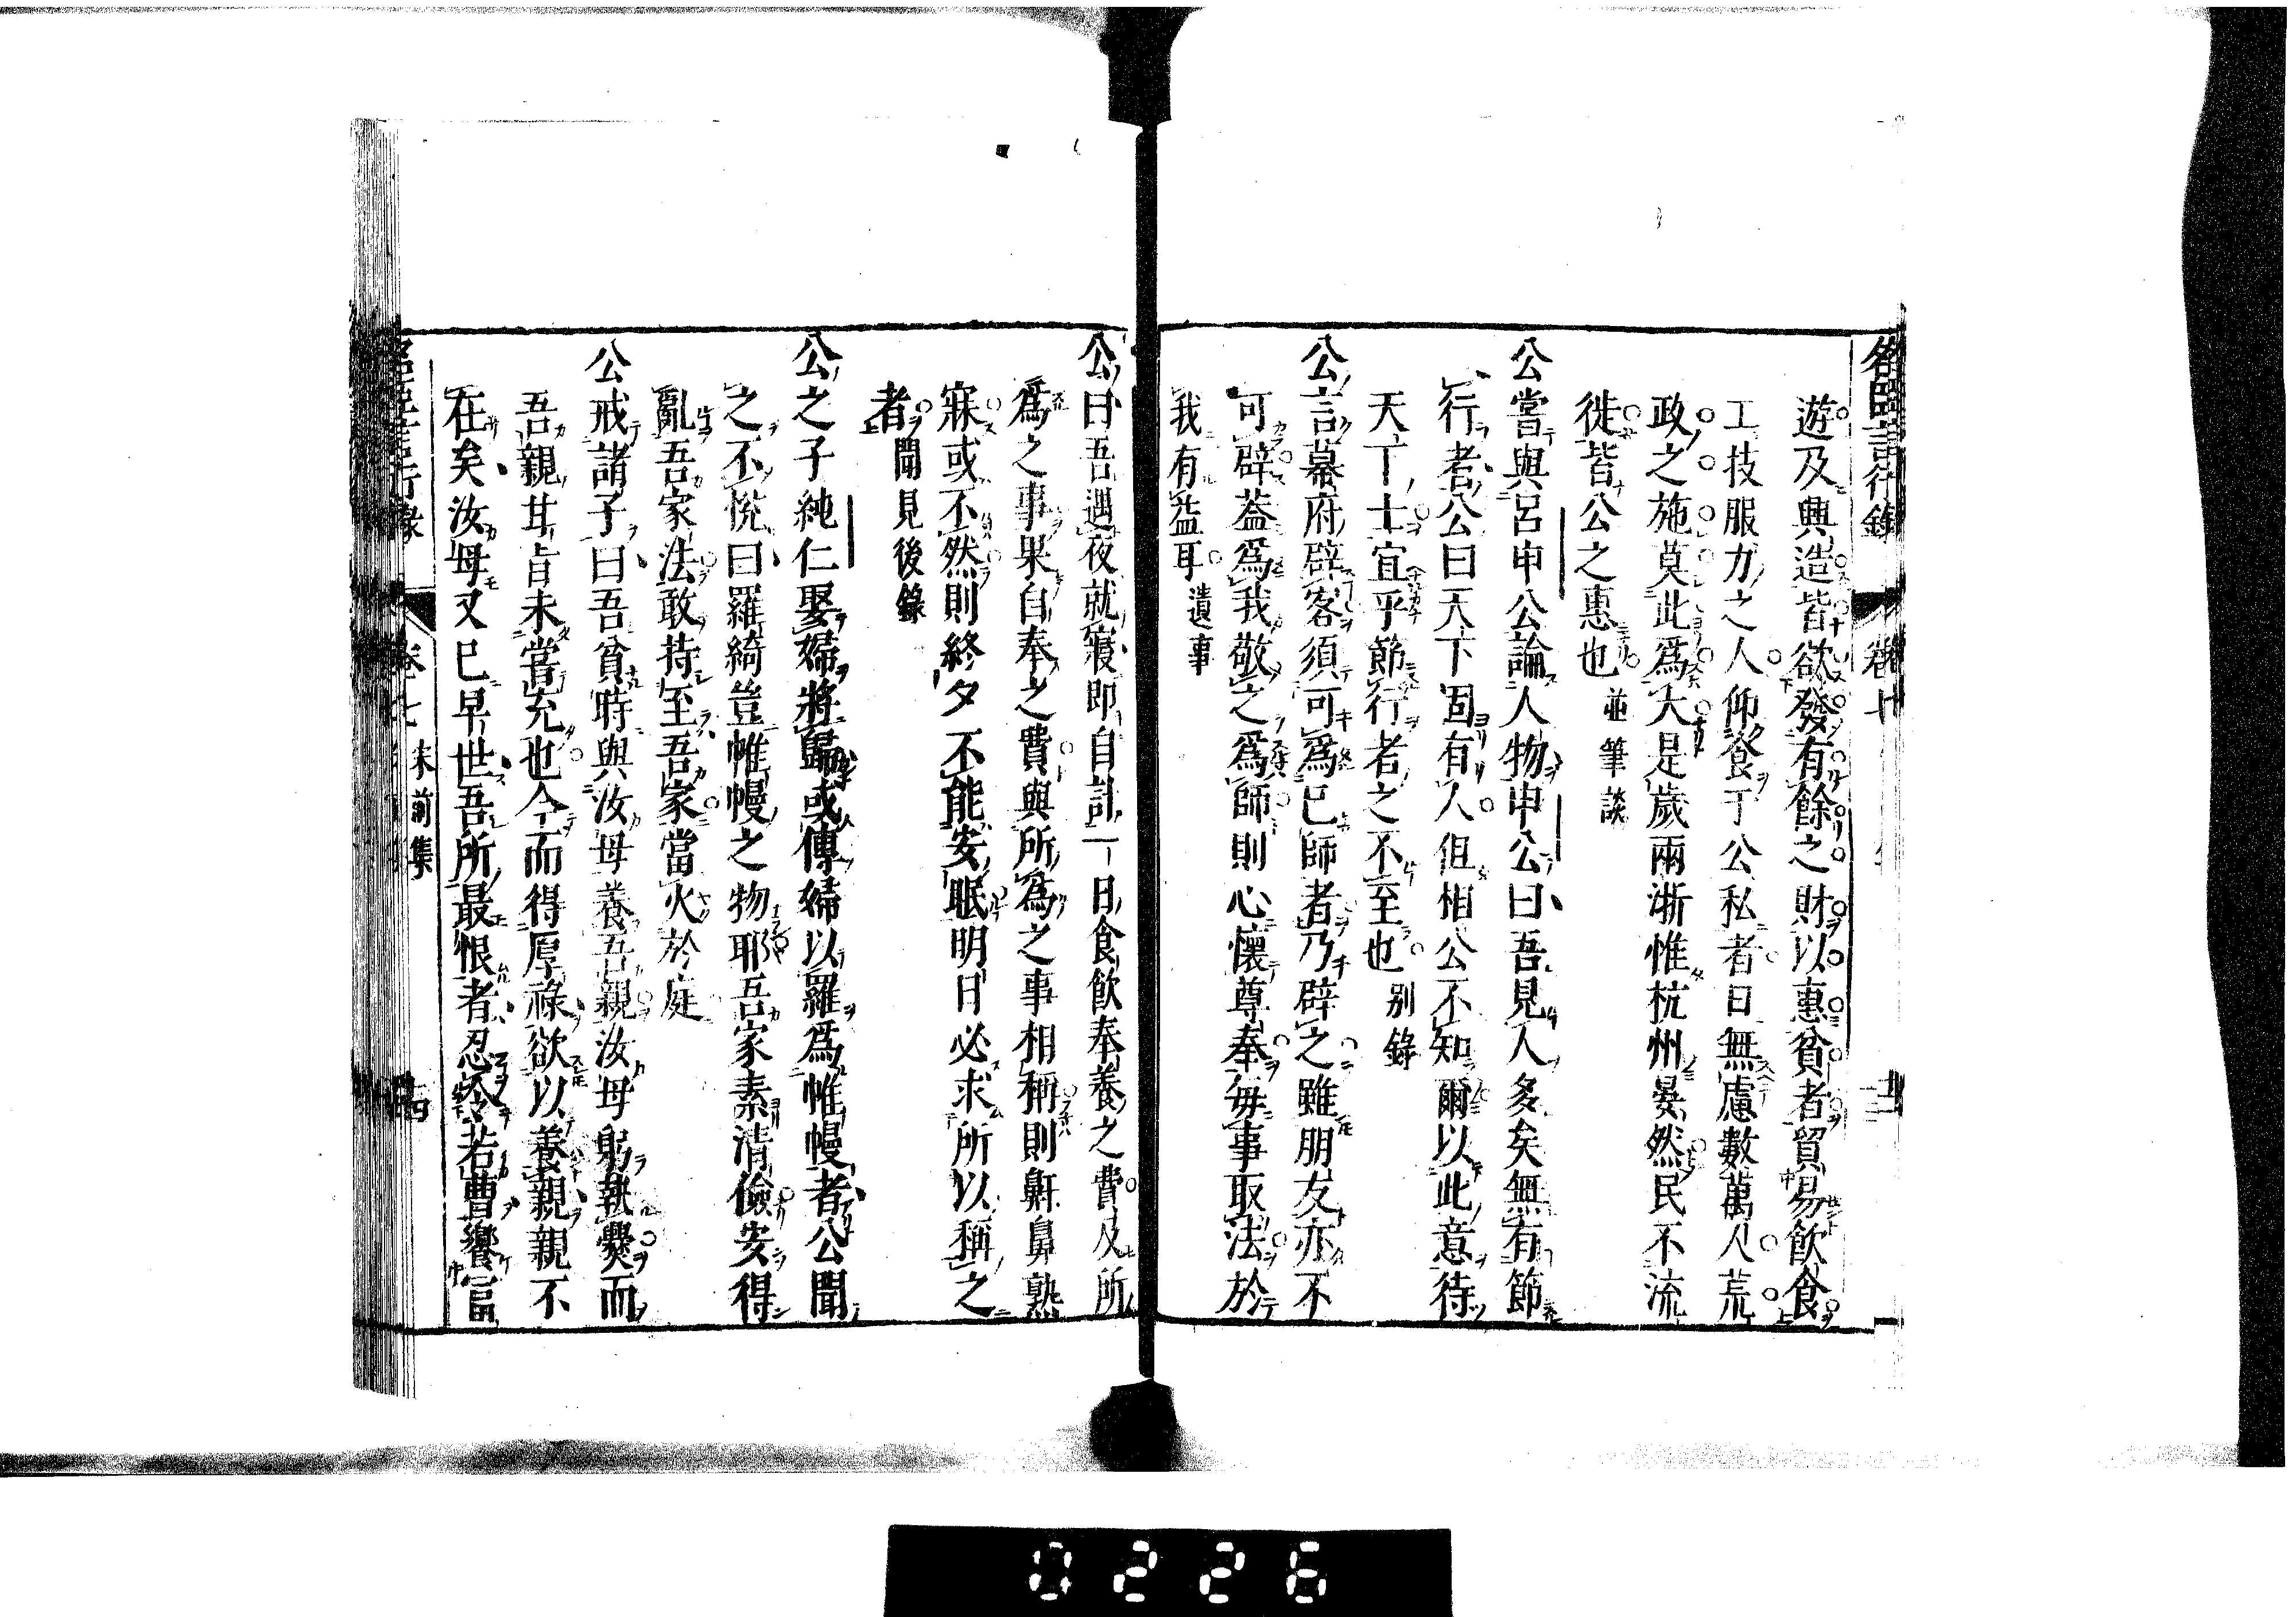 名臣言行錄 卷七
遊及興造皆欲發有餘之財以惠貧者貿易飲食
工技服力之人仰食于公私者日無慮數萬人荒
政之施莫此爲大是歲兩浙惟杭州晏然民不流
徙皆公之惠也 並筆談
公嘗與呂申公論人物申公曰吾見人多矣無有節
行者公曰天下固有人但相公不知爾以此意待
天下士宜乎節行者之不至也 別錄
公言幕府辟客須可爲已師者乃辟之雖朋友亦不
可辟蓋爲我敬之爲師則心懷尊奉每事取法於
我有益耳 遺事
公曰吾遇夜就寢即自計一日食飲奉養之費及所
爲之事果自奉之費與所爲之事相稱則鼾鼻熟
寐或不然則終夕不能安眠明日必求所以稱之
者 聞見後錄
公之子純仁娶婦將歸或傳婦以羅爲帷幔者公聞
之不悅曰羅綺豈帷幔之物耶吾家素清儉安得
亂吾家法敢持至吾家當火於庭
公戒諸子曰吾貧時與汝母養吾親汝母躬執爨而
吾親甘旨未嘗充也今而得厚祿欲以養親親不
在矣汝母又已早世吾所最恨者忍令若曹饗富
名臣言行錄 卷七 朱前集 四
0226